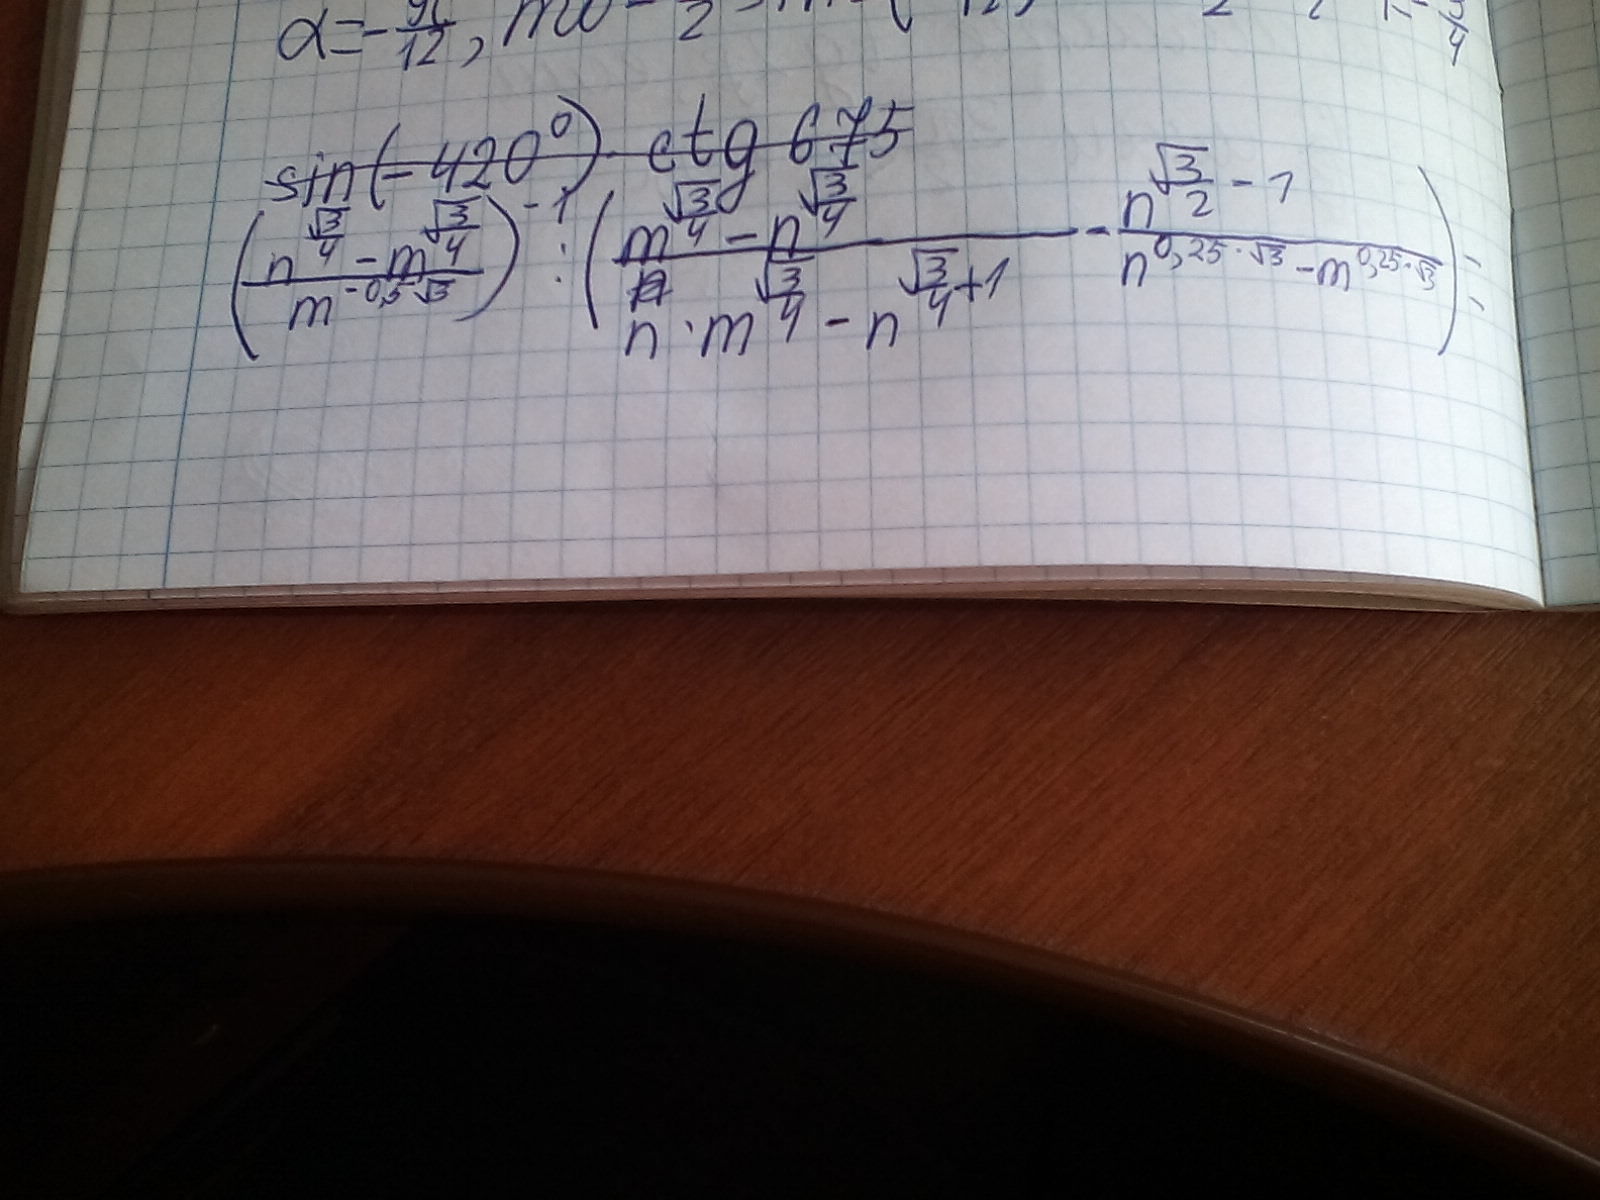 α = -π/12, то
sin(-420°) · ctg 675
((n^(√3/4) - m^(√3/4))/(m^(-0,5·√3)))^(-1) : ((m^(√3/4) - n^(√3/4))/(n·m^(√3/4) - n^(√3/4+1)) - (n^(√3/2-1))/(n^(0,25·√3) - m^(0,25·√3))) =